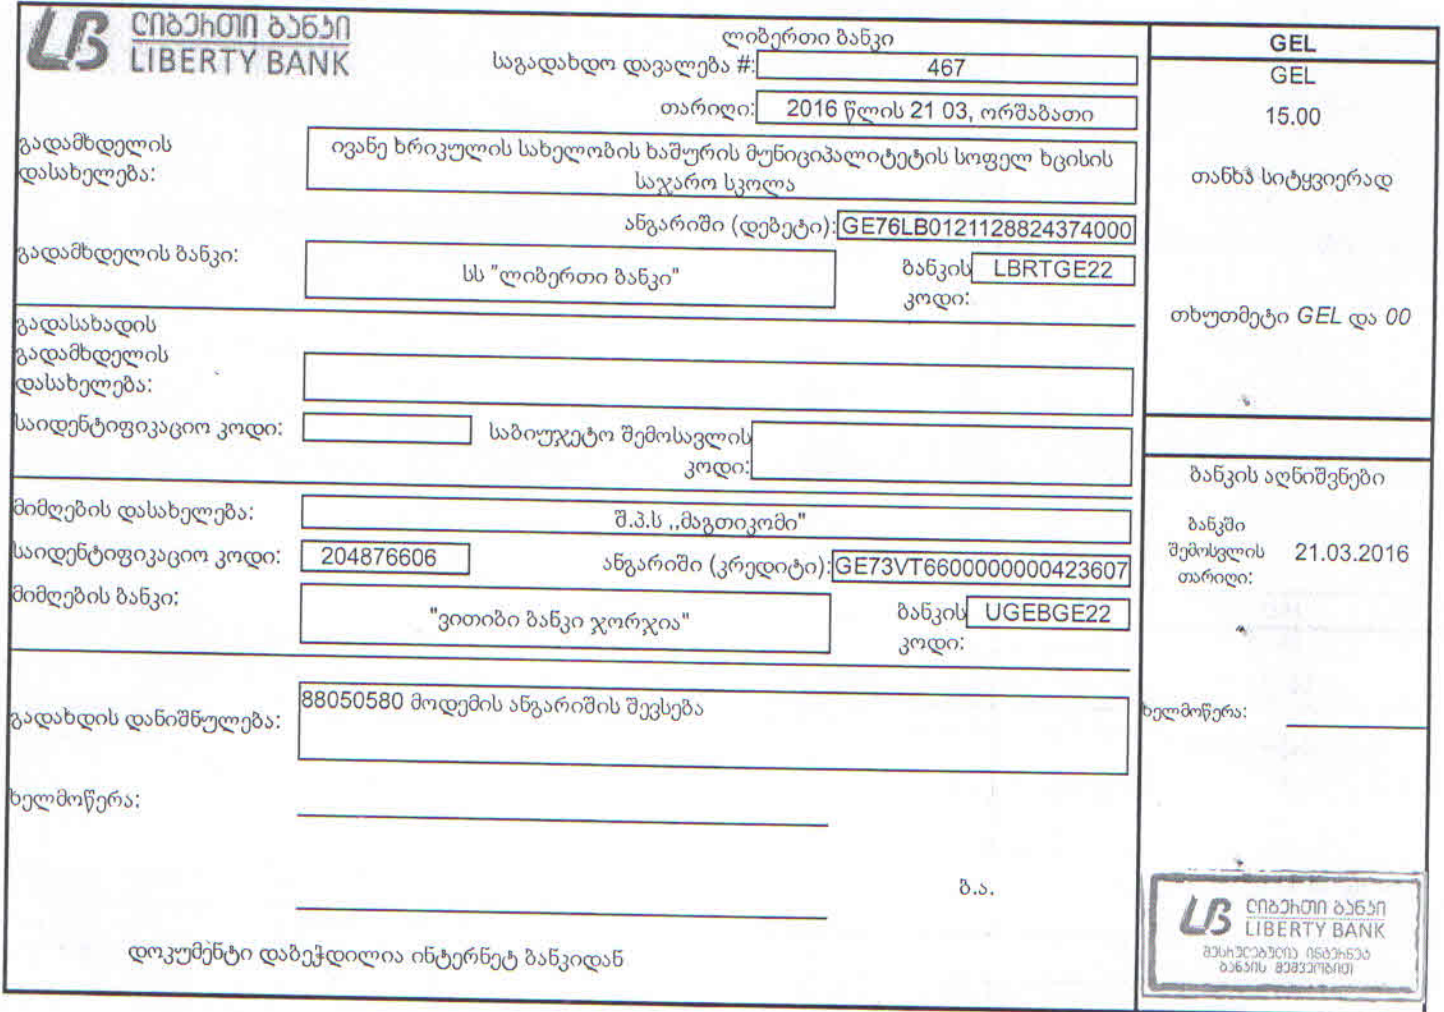 ლიბერთი ბანკი
LIBERTY BANK
ლიბერთი ბანკი
საგადახდო დავალება #: 467
თარიღი: 2016 წლის 21 03, ორშაბათი
გადამხდელის
დასახელება:
ივანე ხრიკულის სახელობის ხაშურის მუნიციპალიტეტის სოფელ ხცისის
საჯარო სკოლა
ანგარიში (დებეტი): GE76LB0121128824374000
გადამხდელის ბანკი:
სს "ლიბერთი ბანკი"
ბანკის LBRTGE22
კოდი:
გადასახადის
გადამხდელის
დასახელება:
საიდენტიფიკაციო კოდი:
საბიუჯეტო შემოსავლის
კოდი:
მიმღების დასახელება: შ.პ.ს ,,მაგთიკომი"
საიდენტიფიკაციო კოდი: 204876606 ანგარიში (კრედიტი): GE73VT6600000000423607
მიმღების ბანკი: "ვითიბი ბანკი ჯორჯია"
ბანკის UGEBGE22
კოდი:
გადახდის დანიშნულება: 88050580 მოდემის ანგარიშის შევსება
ხელმოწერა:
ბ.ა.
დოკუმენტი დაბეჭდილია ინტერნეტ ბანკიდან
GEL
GEL
15.00
თანხა სიტყვიერად
თხუთმეტი GEL და 00
ბანკის აღნიშვნები
ბანკში
შემოსვლის 21.03.2016
თარიღი:
ხელმოწერა:
ლიბერთი ბანკი
LIBERTY BANK
შესრულებულია ინტერნეტ
ბანკის მეშვეობით